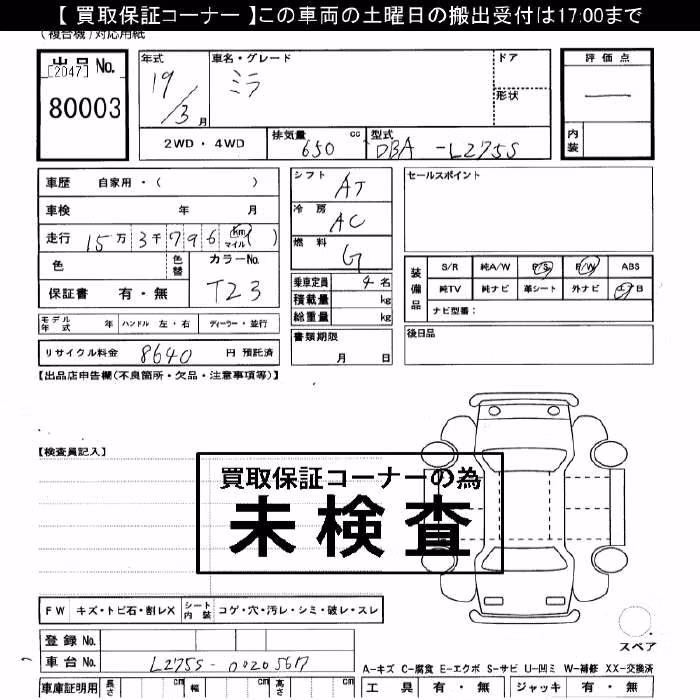 【 買取保証コーナー 】この車両の土曜日の搬出受付は17:00まで
(複合機)対応用紙
出品No.
[2047]
80003
年式
19/3月
車名・グレード
ミラ
ドア
形状
評価点
内装
2WD・4WD
排気量 650 cc
型式 DBA-L275S
車歴 自家用・( )
車検 年 月
走行 15万3千796 km マイル ( )
色
色替
カラーNo.
T23
保証書 有・無
シフト AT
冷房 AC
燃料 G
乗車定員 4名
積載量 kg
総重量 kg
セールスポイント
装備品
S/R 純A/W P/S P/W ABS
純TV 純ナビ 革シート 外ナビ
ナビ型番:
モデル年式 年 ハンドル 左・右 ディーラー・並行
リサイクル料金 8640 円 預託済
書類期限
月 日
後日品
【出品店申告欄(不良箇所・欠品・注意事項等)】
【検査員記入】
買取保証コーナーの為
未検査
FW キズ・トビ石・割レX シート内装 コゲ・穴・汚レ・シミ・破レ・スレ
スペア
登録No.
車台No. L275S-0020567
A-キズ C-腐食 E-エクボ S-サビ U-凹ミ W-補修 XX-交換済
車庫証明用 長さ cm 幅 cm 高さ cm
工具 有・無 ジャッキ 有・無